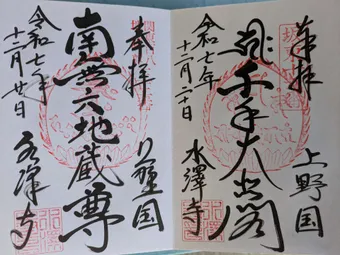 奉拝
上野国
千手大悲閣
令和七年
十二月二十日
水澤寺
奉拝
上野国
南無六地蔵尊
令和七年
十二月廿日
水澤寺